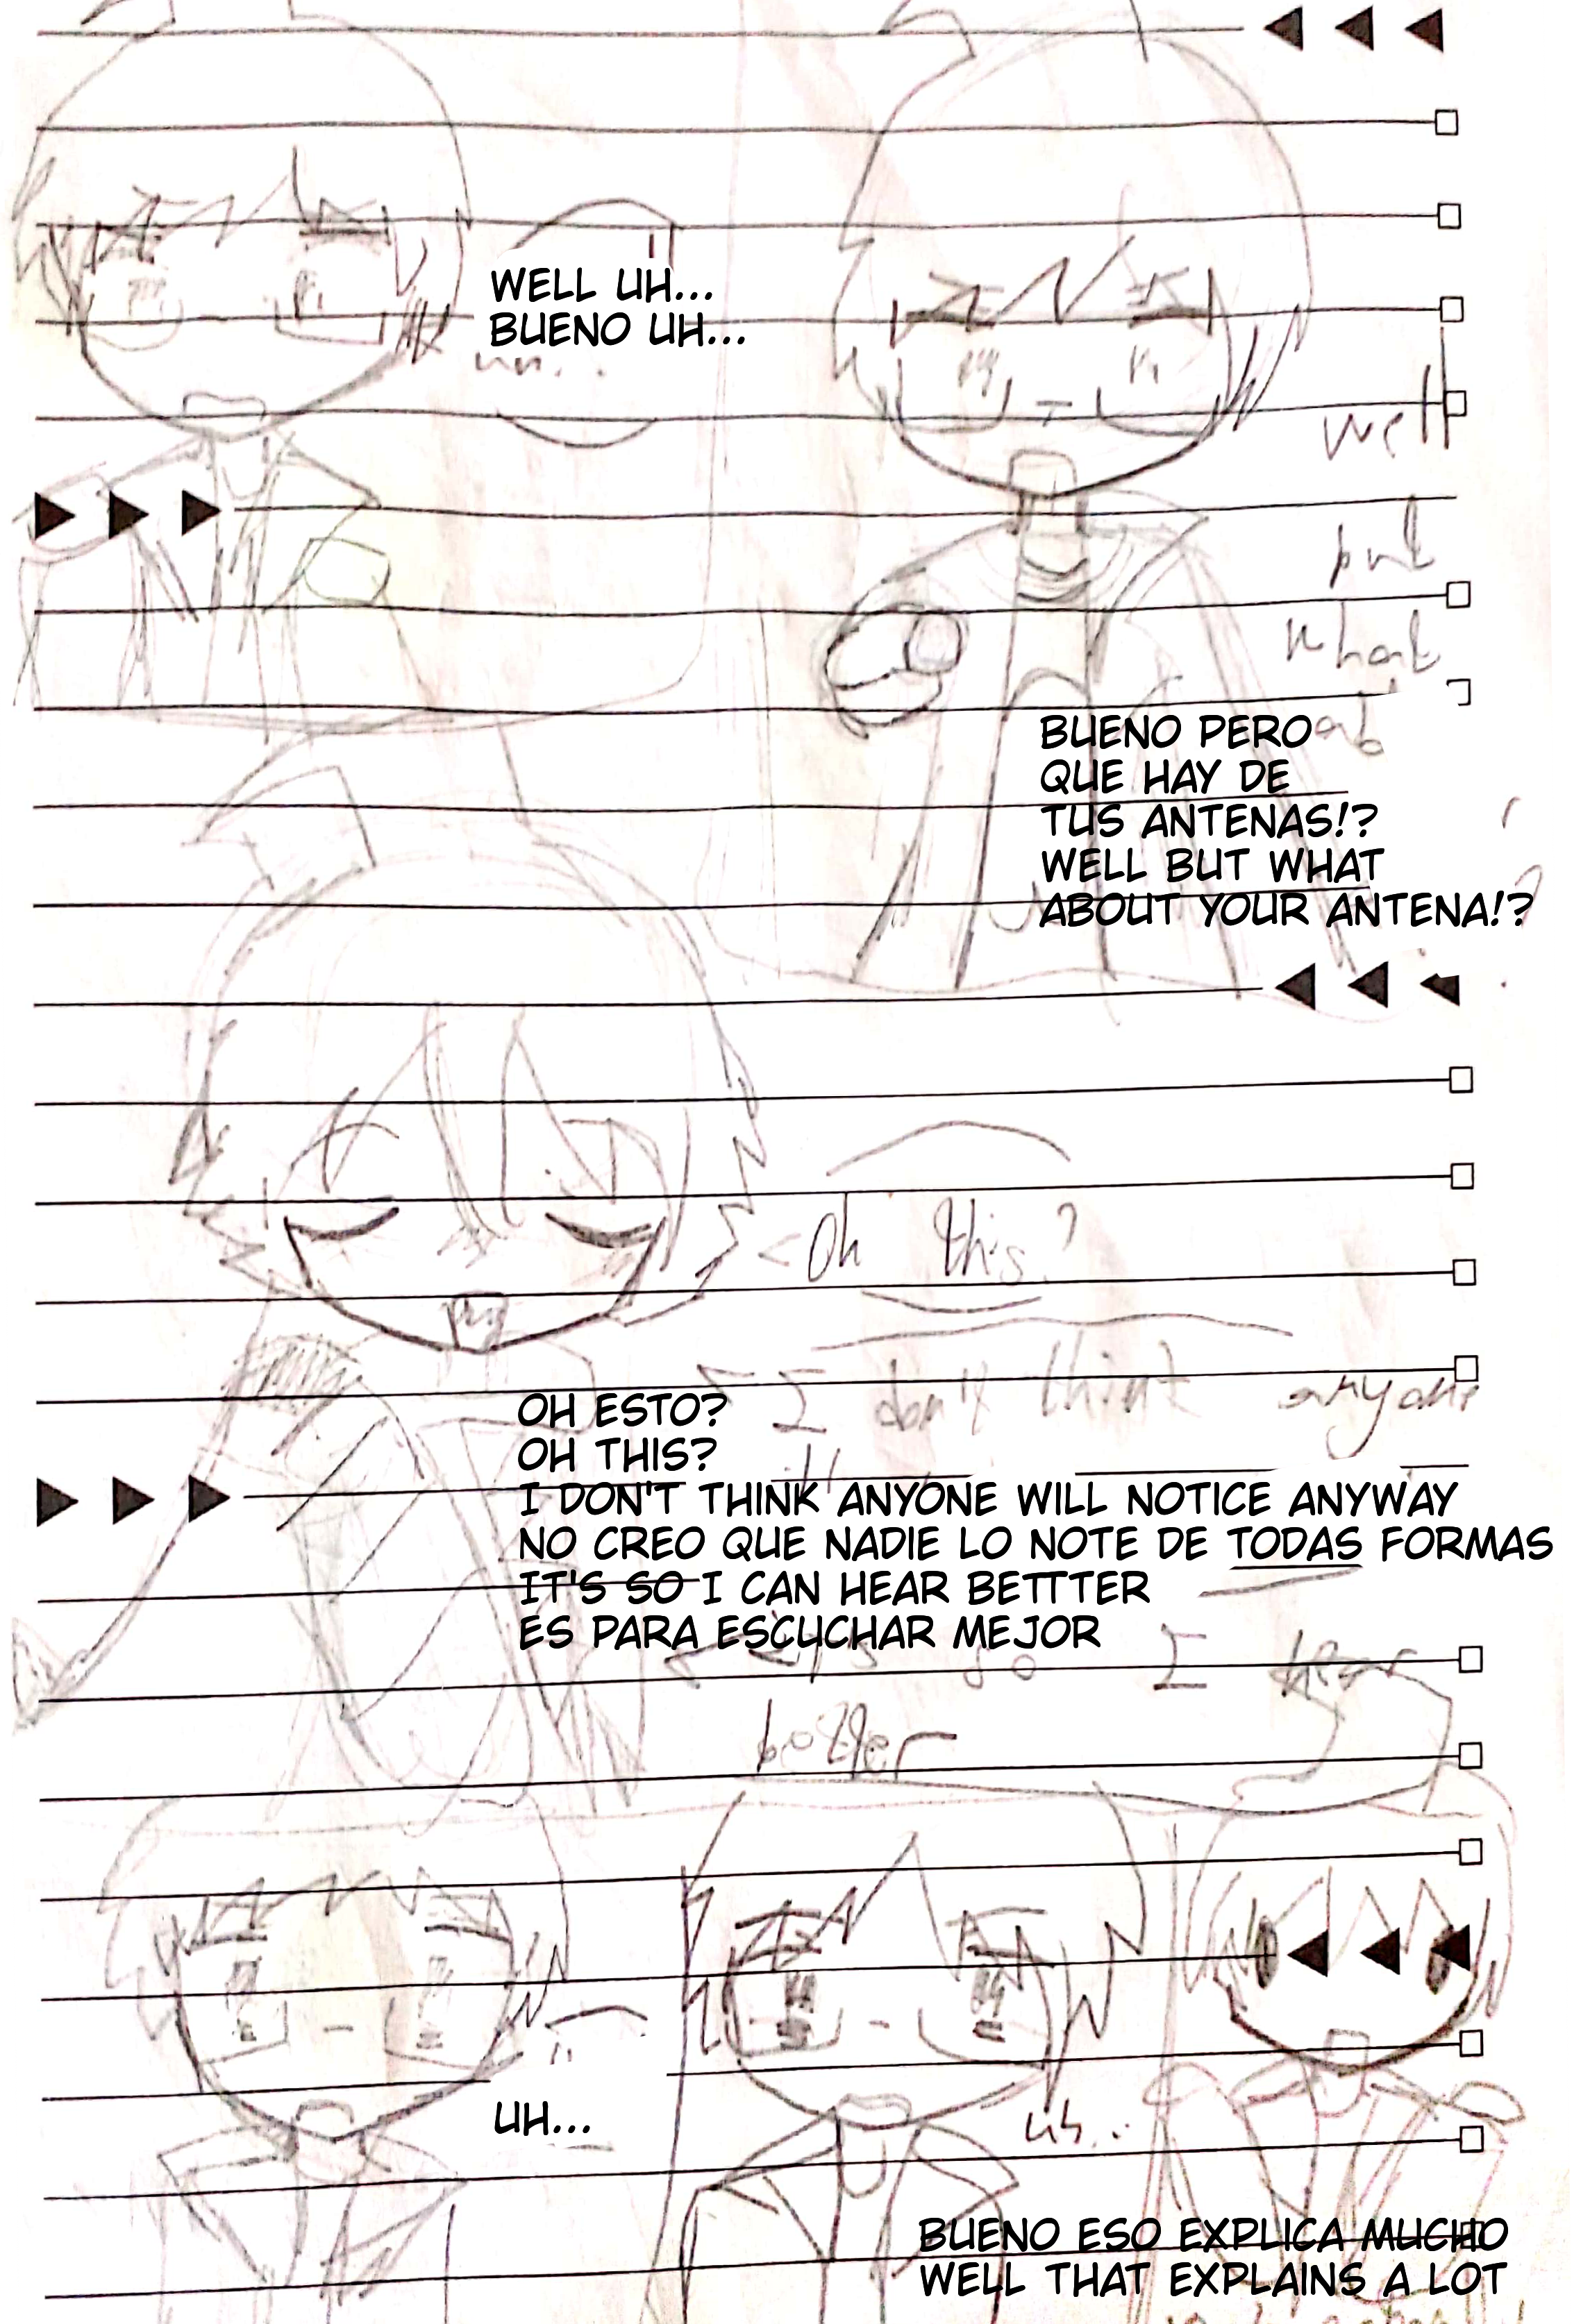 WELL UH...
BUENO UH...
uh...
well
but
what
ab
BUENO PERO
QUE HAY DE
TUS ANTENAS!?
WELL BUT WHAT
ABOUT YOUR ANTENA!?
<Oh this?
I don't think anyone
OH ESTO?
OH THIS?
I DON'T THINK ANYONE WILL NOTICE ANYWAY
NO CREO QUE NADIE LO NOTE DE TODAS FORMAS
IT'S SO I CAN HEAR BETTTER
ES PARA ESCUCHAR MEJOR
it's so I hear
better
UH...
uh...
BUENO ESO EXPLICA MUCHO
WELL THAT EXPLAINS A LOT